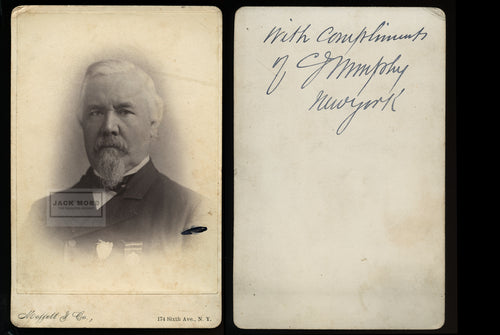 JACK MORD
Moffett & Co.,
174 Sixth Ave., N. Y.
With Compliments
of C J Murphy
New york